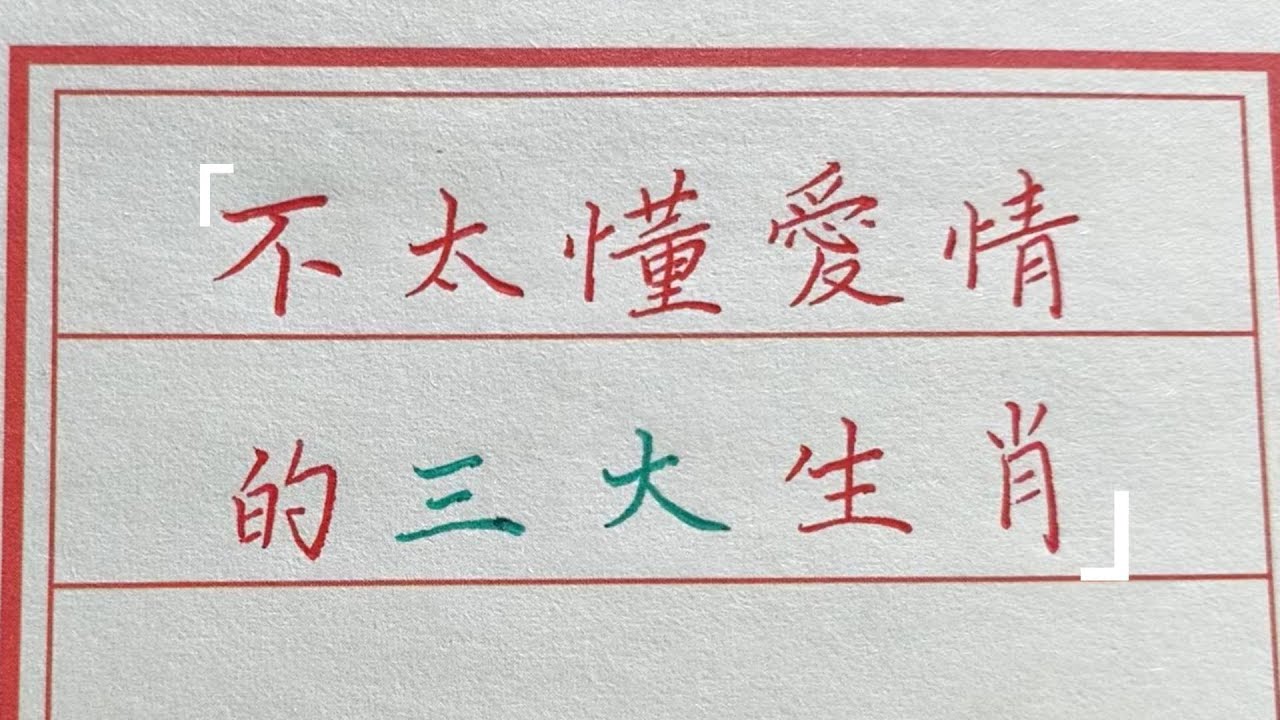 「不太懂愛情
的三大生肖」